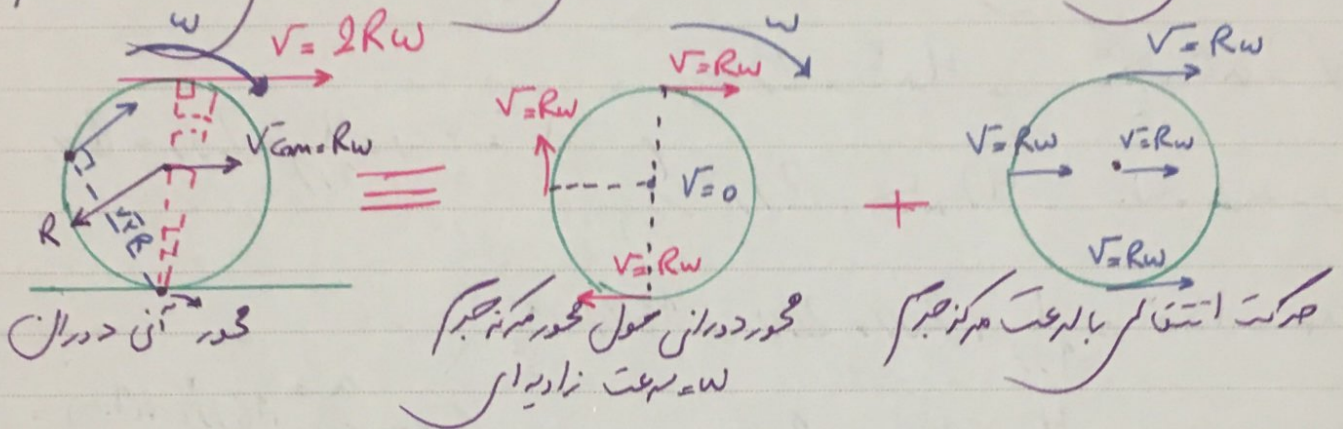 ω
V = 2Rω
V com = Rω
R
√2R
محور آنی دوران
≡
ω
V = Rω
V = Rω
V = 0
V = Rω
محور دورانی حول محور مرکز جرم
ω = سرعت زاویه ای
+
V = Rω
V = Rω
V = Rω
V = Rω
حرکت انتقالی با سرعت مرکز جرم